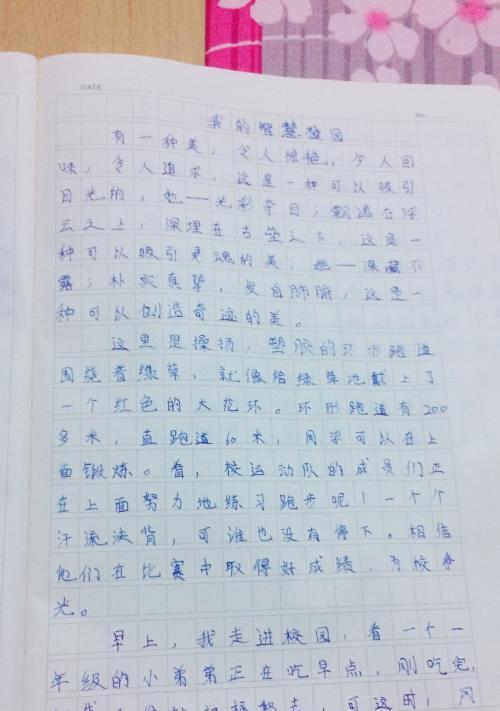 DATE
No.
我的智慧校园
有一种美，令人惊艳，令人回
味，令人追求，这是一种可以吸引
目光的，她——光彩夺目；飘逸在浮
云之上，深埋在古垒之下，这是一
种可以吸引灵魂的美，她——深藏不
露；朴实真挚，发自肺腑，这是一
种可以创造奇迹的美。
这里是操场，塑胶的环形跑道
围绕着绿草，就像给绿草地戴上了
一个红色的大花环。环形跑道有200
多米，直跑道60米，同学可以在上
面锻炼。看，校运动队的成员们正
在上面努力地练习跑步呢！一个个
汗流浃背，可谁也没有停下。相信
他们在比赛中取得好成绩，为校争
光。
早上，我走进校园，看一个一
年级的小弟弟正在吃早点，刚吃完，
，可这时，风